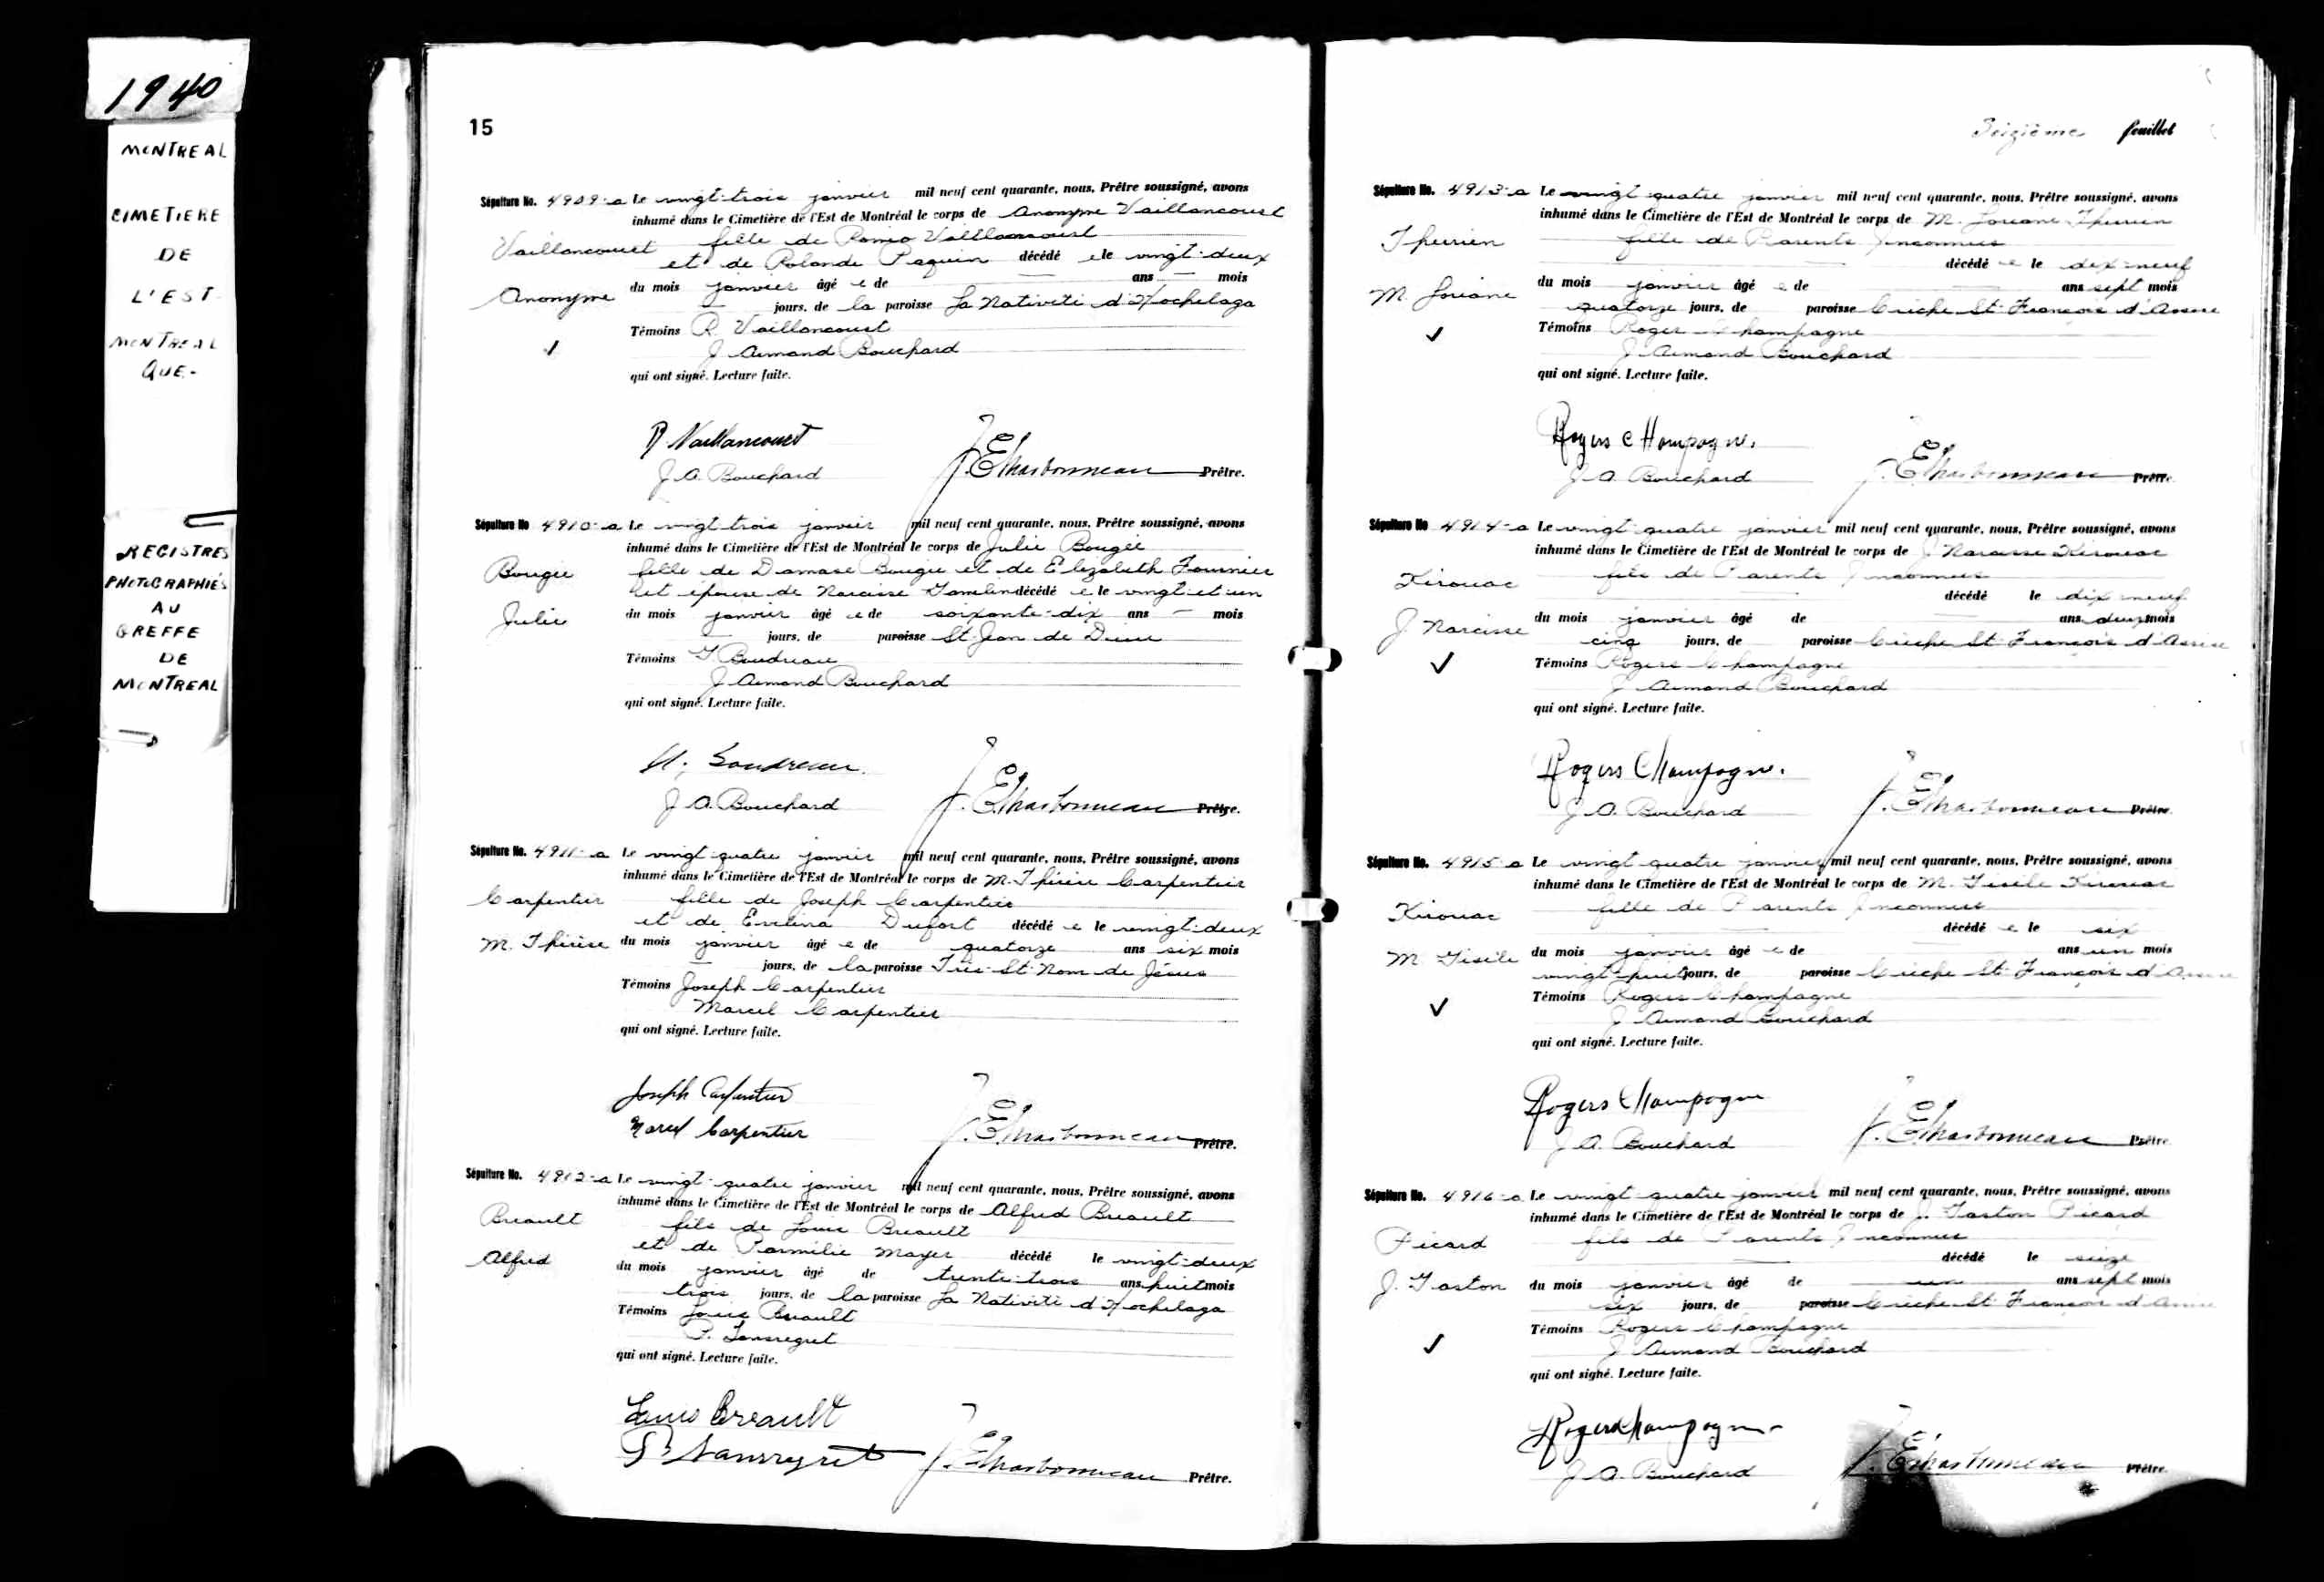 1940
MONTREAL
CIMETIERE
DE
L'EST
MONTREAL
QUE-
REGISTRES
PHOTOGRAPHIÉS
AU
GREFFE
DE
MONTREAL
15
Sépulture No. 4909-a Le vingt-trois janvier mil neuf cent quarante, nous, Prêtre soussigné, avons
inhumé dans le Cimetière de l'Est de Montréal le corps de Anonyme Vaillancourt
Vaillancourt fille de Roméo Vaillancourt
et de Rolande Paquin décédé e le vingt-deux
Anonyme du mois janvier âgé e de — ans — mois
— jours, de la paroisse La Nativité d'Hochelaga
Témoins R. Vaillancourt
✓ J. Armand Bouchard
qui ont signé. Lecture faite.
R Vaillancourt
J. A. Bouchard J. E. Charbonneau Prêtre.
Sépulture No 4910-a Le vingt-trois janvier mil neuf cent quarante, nous, Prêtre soussigné, avons
inhumé dans le Cimetière de l'Est de Montréal le corps de Julie Bougie
Bougie fille de Damase Bougie et de Elizabeth Fournier
et épouse de Narcisse Gamelin décédé e le vingt-et-un
Julie du mois janvier âgé e de soixante-dix ans — mois
— jours, de paroisse St-Jean de Dieu
Témoins G. Boudreau
J. Armand Bouchard
qui ont signé. Lecture faite.
Boudreau.
J. A. Bouchard J. E. Charbonneau Prêtre.
Sépulture No. 4911-a Le vingt-quatre janvier mil neuf cent quarante, nous, Prêtre soussigné, avons
inhumé dans le Cimetière de l'Est de Montréal le corps de M. Thérèse Carpentier
Carpentier fille de Joseph Carpentier
et de Evelina Dufort décédé e le vingt-deux
M. Thérèse du mois janvier âgé e de quatorze ans six mois
— jours, de la paroisse Très-St-Nom de Jésus
Témoins Joseph Carpentier
Marcel Carpentier
qui ont signé. Lecture faite.
Joseph Carpentier
Marcel Carpentier J. E. Charbonneau Prêtre.
Sépulture No. 4912-a Le vingt-quatre janvier mil neuf cent quarante, nous, Prêtre soussigné, avons
inhumé dans le Cimetière de l'Est de Montréal le corps de Alfred Breault
Breault fils de Louis Breault
et de Parmélie Mayer décédé le vingt-deux
Alfred du mois janvier âgé de trente-trois ans huit mois
trois jours, de la paroisse La Nativité d'Hochelaga
Témoins Louis Breault
P. Lansregret
qui ont signé. Lecture faite.
Louis Breault
P. Lansregret J. E. Charbonneau Prêtre.
Seizième feuillet
Sépulture No. 4913-a Le vingt-quatre janvier mil neuf cent quarante, nous, Prêtre soussigné, avons
inhumé dans le Cimetière de l'Est de Montréal le corps de M. Loriane Therrien
Therrien fille de Parents Inconnus
décédé e le dix-neuf
M. Loriane du mois janvier âgé e de — ans sept mois
quatorze jours, de paroisse Crèche St-François d'Assise
Témoins Roger Champagne
✓ J. Armand Bouchard
qui ont signé. Lecture faite.
Rogers Champagne.
J. A. Bouchard J. E. Charbonneau Prêtre.
Sépulture No 4914-a Le vingt-quatre janvier mil neuf cent quarante, nous, Prêtre soussigné, avons
inhumé dans le Cimetière de l'Est de Montréal le corps de J. Narcisse Kirouac
Kirouac fils de Parents Inconnus
décédé le dix-neuf
J. Narcisse du mois janvier âgé de — ans deux mois
cinq jours, de paroisse Crèche St-François d'Assise
✓ Témoins Rogers Champagne
J. Armand Bouchard
qui ont signé. Lecture faite.
Rogers Champagne.
J. A. Bouchard J. E. Charbonneau Prêtre.
Sépulture No. 4915-a Le vingt-quatre janvier mil neuf cent quarante, nous, Prêtre soussigné, avons
inhumé dans le Cimetière de l'Est de Montréal le corps de M. Gisèle Kirouac
Kirouac fille de Parents Inconnus
décédé e le six
M Gisèle du mois janvier âgé e de — ans un mois
vingt-huit jours, de paroisse Crèche St-François d'Assise
Témoins Rogers Champagne
✓ J. Armand Bouchard
qui ont signé. Lecture faite.
Rogers Champagne
J. A. Bouchard J. E. Charbonneau Prêtre
Sépulture No. 4916-a Le vingt-quatre janvier mil neuf cent quarante, nous, Prêtre soussigné, avons
inhumé dans le Cimetière de l'Est de Montréal le corps de J. Gaston Picard
Picard fils de Parents Inconnus
décédé le seize
J. Gaston du mois janvier âgé de un ans sept mois
six jours, de paroisse Crèche St-François d'Assise
Témoins Rogers Champagne
✓ J. Armand Bouchard
qui ont signé. Lecture faite.
Rogers Champagne
J. A. Bouchard J. E. Charbonneau Prêtre.